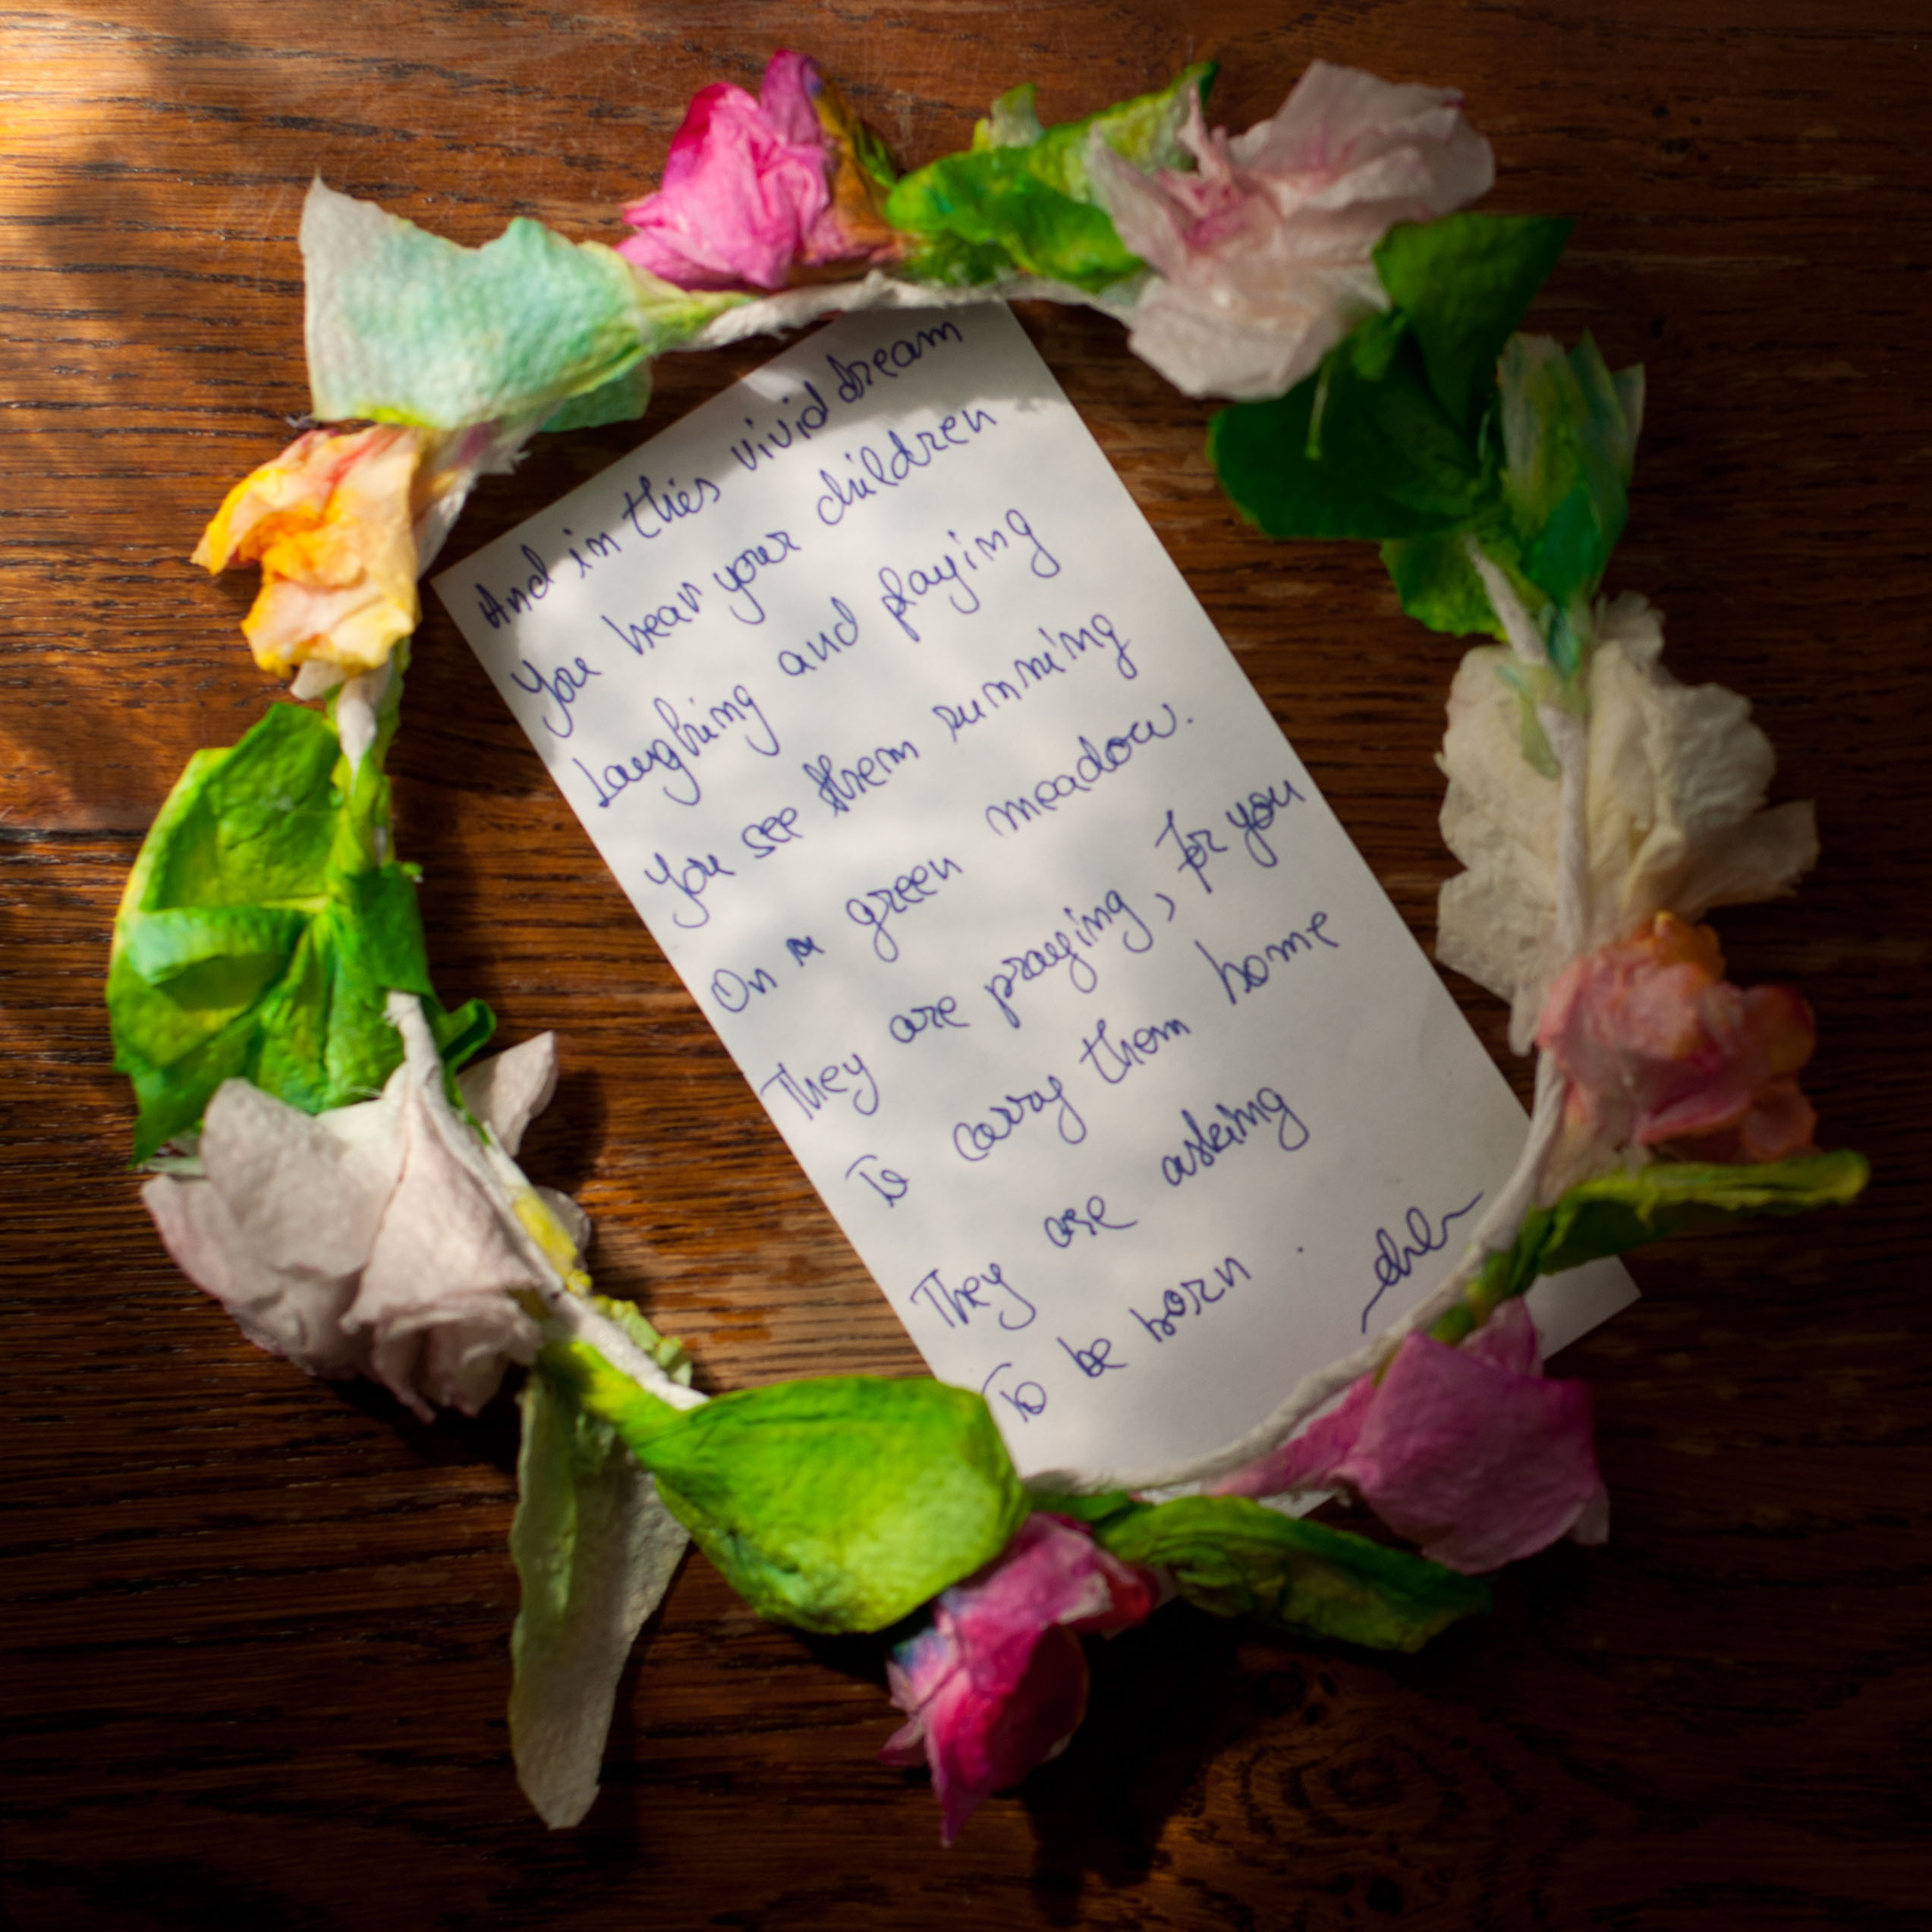 And in this vivid dream
You hear your children
Laughing and playing
You see them running
On a green meadow.
They are praying, for you
To carry them home
They are asking
To be born.